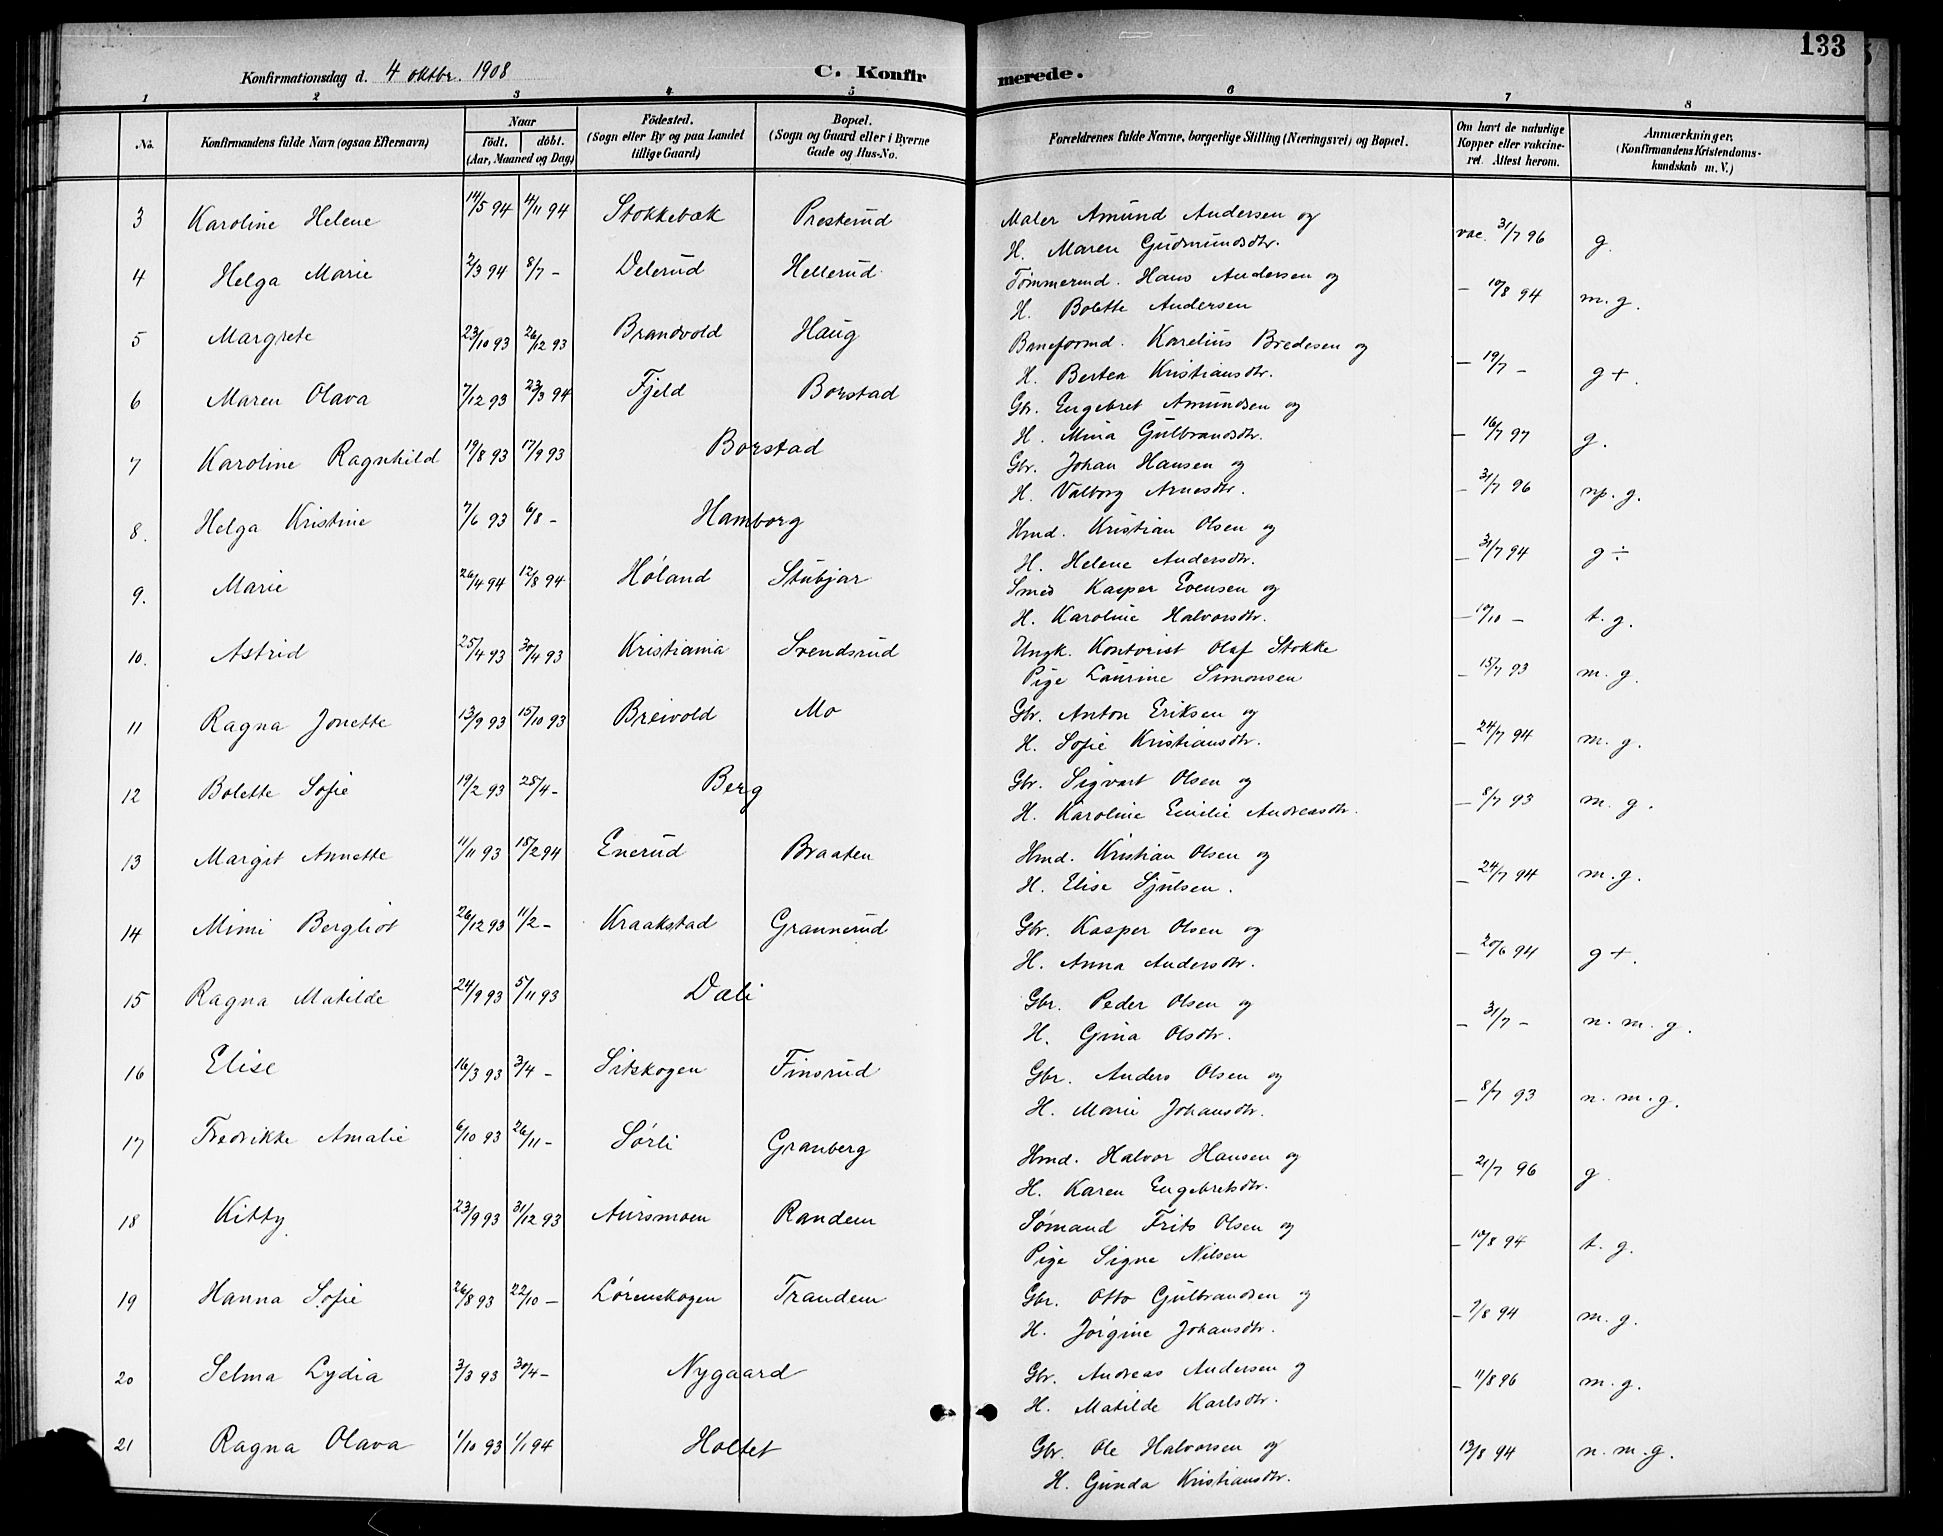 133
Konfirmationsdag d. 4 oktbr. 1908 C. Konfirmerede.
1 2 3 4 5 6 7 8
No. Konfirmandens fulde Navn (ogsaa Efternavn) Naar födt. döbt. (Aar, Maaned og Dag) Födested. (Sogn eller By og paa Landet tillige Gaard) Bopæl. (Sogn og Gaard eller i Byerne Gade og Hus-No. Forældrenes fulde Navne, borgerlige Stilling (Næringsvei) og Bopæl. Om havt de naturlige Kopper eller vakcineret. Attest herom. Anmærkninger. (Konfirmandens Kristendomskundskab m. V.)
3 Karoline Helene 14/5 94 4/11 94 Stokkebæk Presterud Maler Amund Andersen og
H. Maren Gudmundsdtr. vac. 31/7 96 g.
4 Helga Marie 2/3 94 8/7 - Delerud Hellerud Tømmermd. Hans Andersen og
H. Bolette Andersen - 10/8 94 m. g.
5 Margrete 23/10 93 26/12 93 Brandvold Haug Baneformd. Karelius Bredesen og
H. Bertea Kristiansdtr. - 19/7 - g +.
6 Maren Olava 7/12 93 23/3 94 Fjeld Borstad Gbr. Engebret Amundsen og
H. Mina Gulbrandsdtr. - 16/7 97 g.
7 Karoline Ragnhild 19/8 93 17/9 93 Borstad Gbr. Johan Hansen og
H. Valborg Arnesdtr. - 31/7 96 np. g.
8. Helga Kristine 7/6 93 6/8 - Hamborg Hmd. Kristian Olsen og
H. Helene Andersdtr. - 31/7 94 g ÷
9. Marie 26/4 94 12/8 94 Høland Stubjar Smed Kasper Evensen og
H. Karoline Halvorsdtr. - 10/10 - t. g.
10. Astrid 25/4 93 30/4 93 Kristiania Svendsrud Ungk. Kontorist Olaf Stokke
Pige Laurine Simonsen - 15/7 93 m. g.
11 Ragna Jonette 13/9 93 15/10 93 Breivold Mo Gbr. Anton Eriksen og
H. Sofie Kristiansdtr. - 24/7 94 m. g.
12 Bolette Sofie 19/2 93 25/4 - Berg Gbr. Sigvart Olsen og
H. Karoline Emilie Andreasdtr. - 8/7 93 m. g.
13 Margit Annette 11/11 93 18/2 94 Enerud Braaten Hmd. Kristian Olsen og
H. Elise Sjulsen. - 24/7 94 m. g.
14 Mimi Bergliot 26/12 93 11/2 - Kraakstad Grannerud Gbr. Kasper Olsen og
H. Anna Andersdtr. - 20/6 94 g +.
15 Ragna Matilde 24/9 93 5/11 93 Dali Gbr. Peder Olsen og
H. Gina Olsdtr. - 31/7 - n. m. g.
16 Elise 16/3 93 3/4 - Sitskogen Finsrud Gbr. Anders Olsen og
H. Marie Johansdtr. - 8/7 93 n. m. g.
17 Fredrikke Amalie 6/10 93 26/11 - Sørli Granberg Hmd. Halvor Hansen og
H. Karen Engebretsdtr. - 21/7 96 g
18 Kitty 23/9 93 31/12 93 Aursmoen Randem Sømand Frits Olsen og
Pige Signe Nilsen - 10/8 94 t. g.
19 Hanna Sofie 26/8 93 22/10 - Lørenskogen Trandem Gbr. Otto Gulbrandsen og
H. Jørgine Johansdtr. - 7/8 94 m. g.
20 Selma Lydia 3/3 93 30/4 - Nygaard Gbr. Andreas Andersen og
H. Matilde Karlsdtr. - 11/8 96 m. g.
21 Ragna Olava 1/10 93 1/1 94 Holtet Gbr. Ole Halvorsen og
H. Gunda Kristiansdtr. 13/8 94 n. m. g.